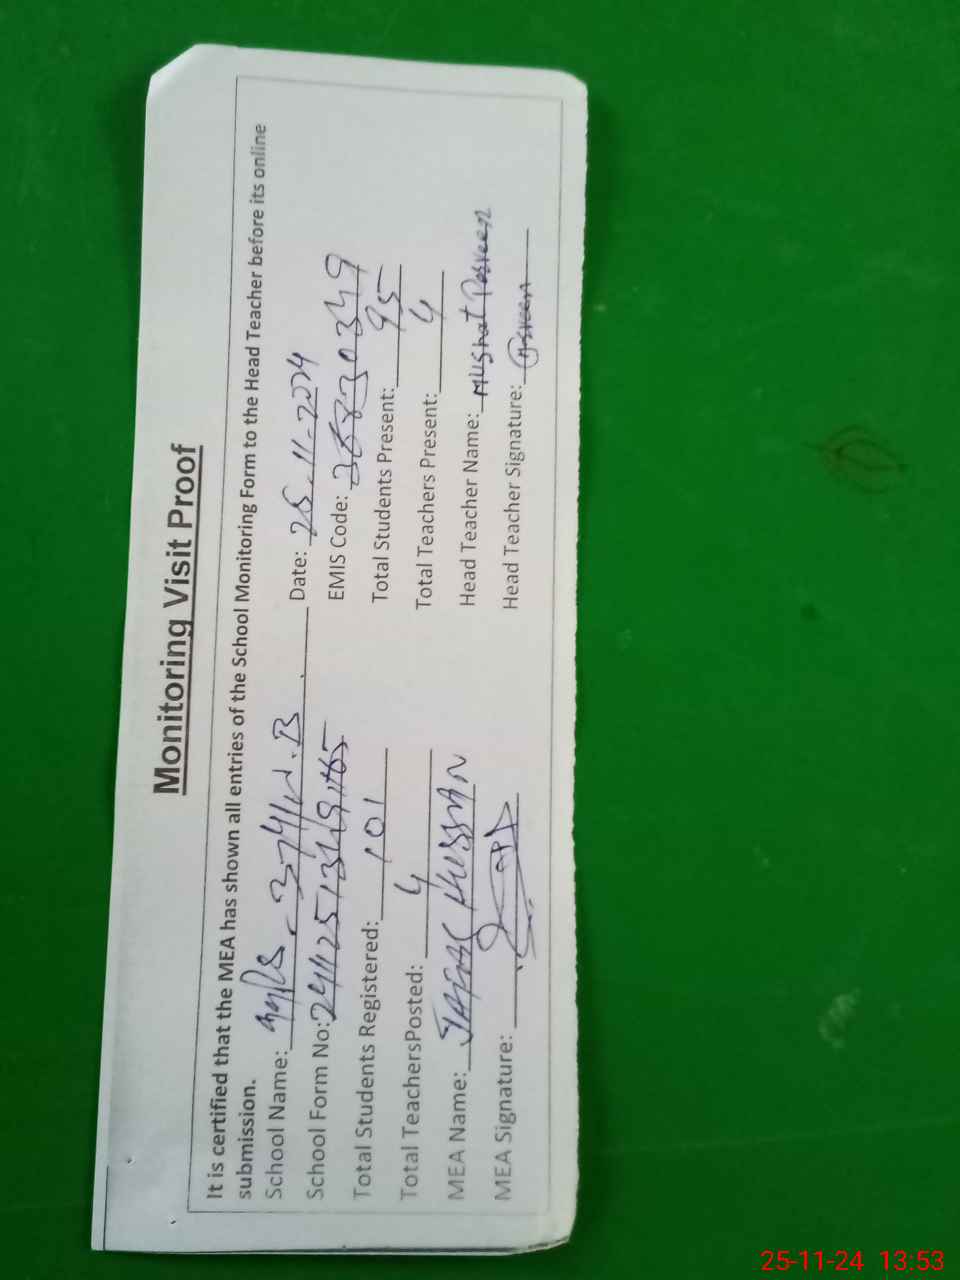 Monitoring Visit Proof
It is certified that the MEA has shown all entries of the School Monitoring Form to the Head Teacher before its online
submission.
School Name: 374/W.B Date: 25-11-2024
School Form No: EMIS Code: 36830349
Total Students Registered: 101 Total Students Present: 95
Total TeachersPosted: 4 Total Teachers Present: 4
MEA Name: JAFAR HUSSAIN Head Teacher Name: Musrat Parveen
MEA Signature: Head Teacher Signature:
25-11-24 13:53